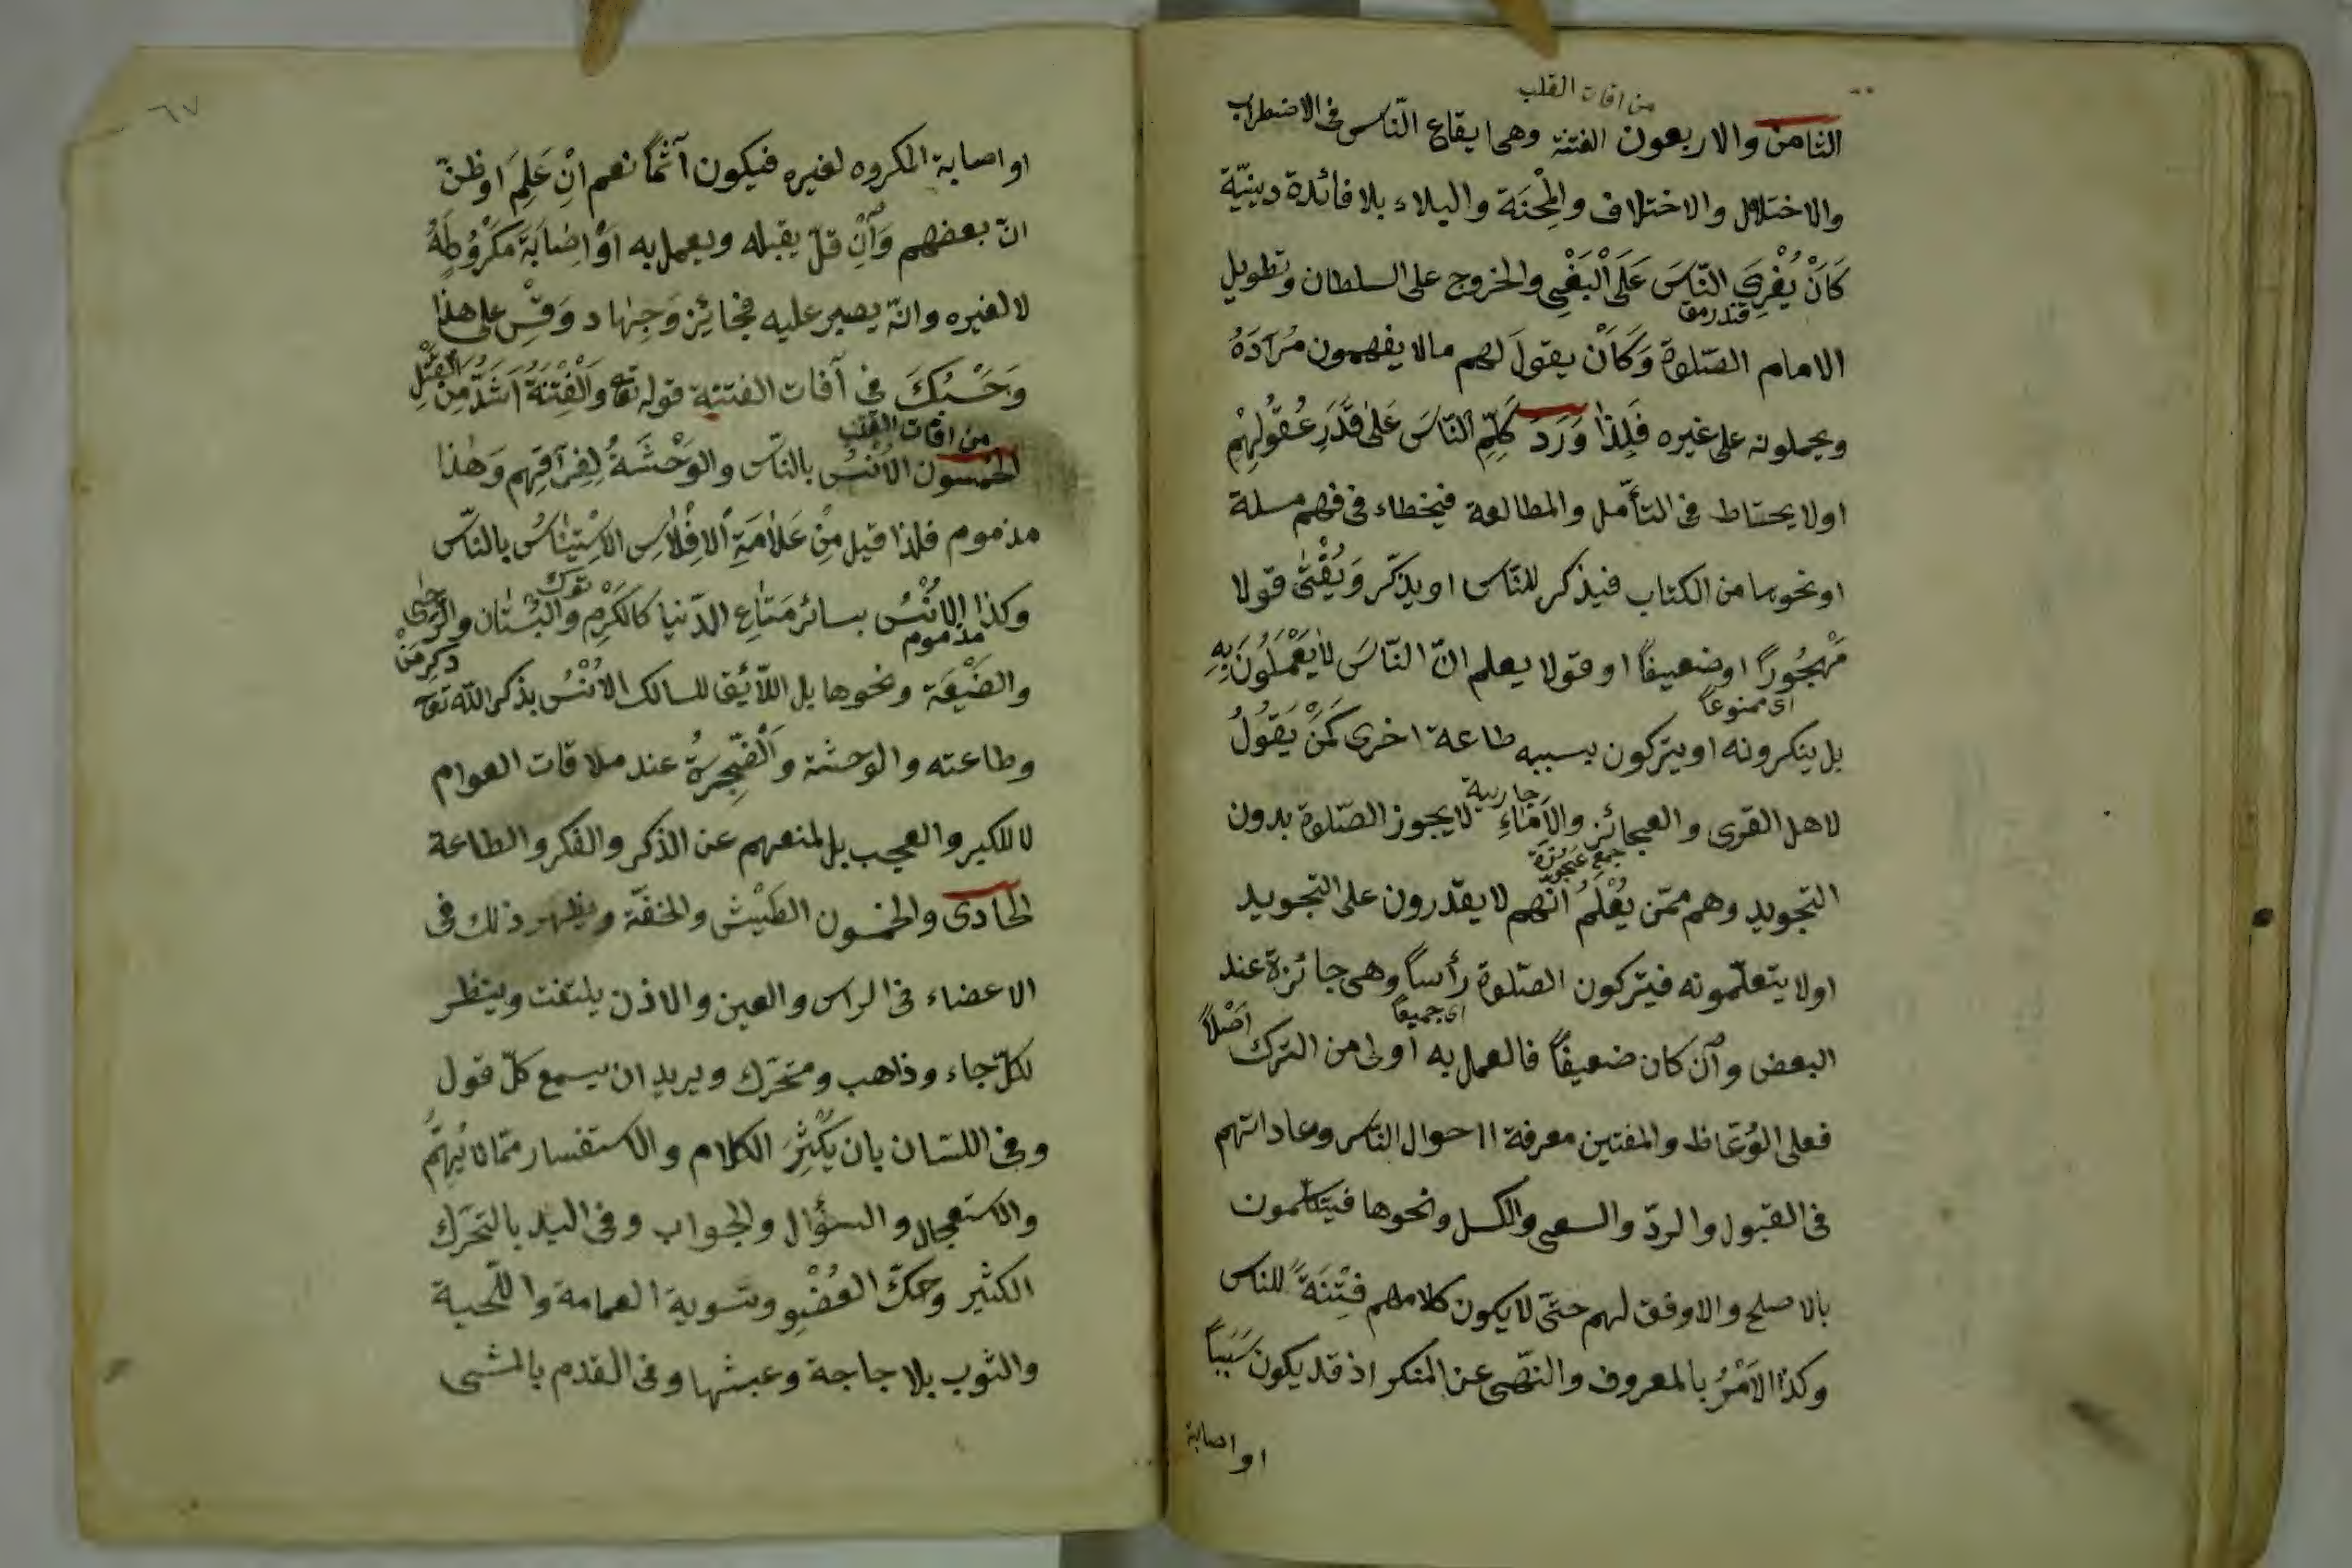 من افات القلب
الثامن والاربعون الفتنة وهى ايقاع الناس فى الاضطراب
والاختلال والاختلاف والمِحْنَة والبلاء بلا فائدة دينيّة
كَاَنْ يُغْرِىَ النّاسَ عَلَى الْبَغْىِ والخروج على السلطان وتطويل
الامام الصّلوة وَكَاَنْ يقولَ لهم مالا يفهمون مُرَادَهُ
ويحملونه على غيره فَلِذَا وَرَدَ كَلِّمِ النّاسَ عَلَى قَدْرِ عُقُولِهِمْ
اولا يحتاط فى التأمّل والمطالعة فيخطاء فى فهم مسلة
اونحوها من الكتاب فيذكر للنّاس او يذكّر وَيُفْتِى قولا
مَهْجُورًا اوضعيفاً او قولا يعلم انّ النّاسَ لا يَعْمَلُونَ بِهِ
اى ممنوعاً
بل ينكرونه اويتركون بسببه طاعة اخرى كَمَنْ يَقُولُ
جارية
لاهل القرى والعجائز والاَمَاءِ لايجوز الصّلوة بدون
جمع عجوزة
التجويد وهم ممّن يُعْلَمُ انّهم لا يقدرون على التجويد
اولا يتعلّمونه فيتركون الصّلوة رأساً وهى جائزة عند
اى جميعاً
البعض وان كان ضعيفاً فالعمل به اولى من الترك اَصْلاً
فعلى الوُعّاظ والمفتين معرفة احوال الناس وعاداتهم
فى القبول والردّ والسعى والكسل ونحوها فيتكلّمون
بالاصلح والاوفق لهم حتّى لا يكون كلامهم فِتْنَةً للناس
وكذا الاَمْرُ بالمعروف والنّهى عن المنكر اذ قد يكون سَبَباً
او اصابة
٦٧
او اصابة المكروه لغيره فيكون آثماً نعم اِنْ عَلِمَ اوظنّ
انّ بعضهم وَاِنْ قلّ يقبله ويعمل به اَوْ اِصَابَةَ مَكْرُوهٍ لَهُ
لا لغيره وانّه يصبر عليه فجائِز وَجِهاد وَقِسْ على هذا
وَحَسْبُكَ فى آفات الفتنة قوله تع وَالْفِتْنَةُ اَشَدُّ مِنَ الْقَتْلِ
من افات القلب
الخمسون الاُنْسُ بالنّاس والوَحْشَةُ لِفِرَاقِهِم وَهٰذا
مذموم فلذا قيل مِنْ عَلاَمَةِ الاِفْلاَسِ الاِسْتِينَاسُ بالنّاس
وكذا الاُنْسُ بسائر مَتَاعِ الدّنيا كالكَرْمِ والبُسْتَان والرَّحَى
مذموم
والضَيْعَة ونحوها بل اللاّئق للسالك الاُنْسُ بذكر اللّه تع
وطاعته والوحشة والضّجرة عند ملاقات العوام
لا للكبر والعجب بل لمنعهم عن الذكر والفكر والطاعة
الحادى والخمسون الطَيْش والخفّة ويظهر ذلك فى
الاعضاء فى الراس والعين والاذن يلتفت وينظر
لكلّ جاء وذاهب ومتحرّك ويريد ان يسمع كلّ قول
وفى اللسان بان يُكْثِرَ الكلام والاستفسار ممّا لا يُهِمُّ
والاستعجال والسؤال والجواب وفى اليد بالتحرّك
الكثير وحكّ العُضْوِ وتسوية العمامة واللّحية
والثوب بلا حاجة وعبثها وفى القدم بالمشى